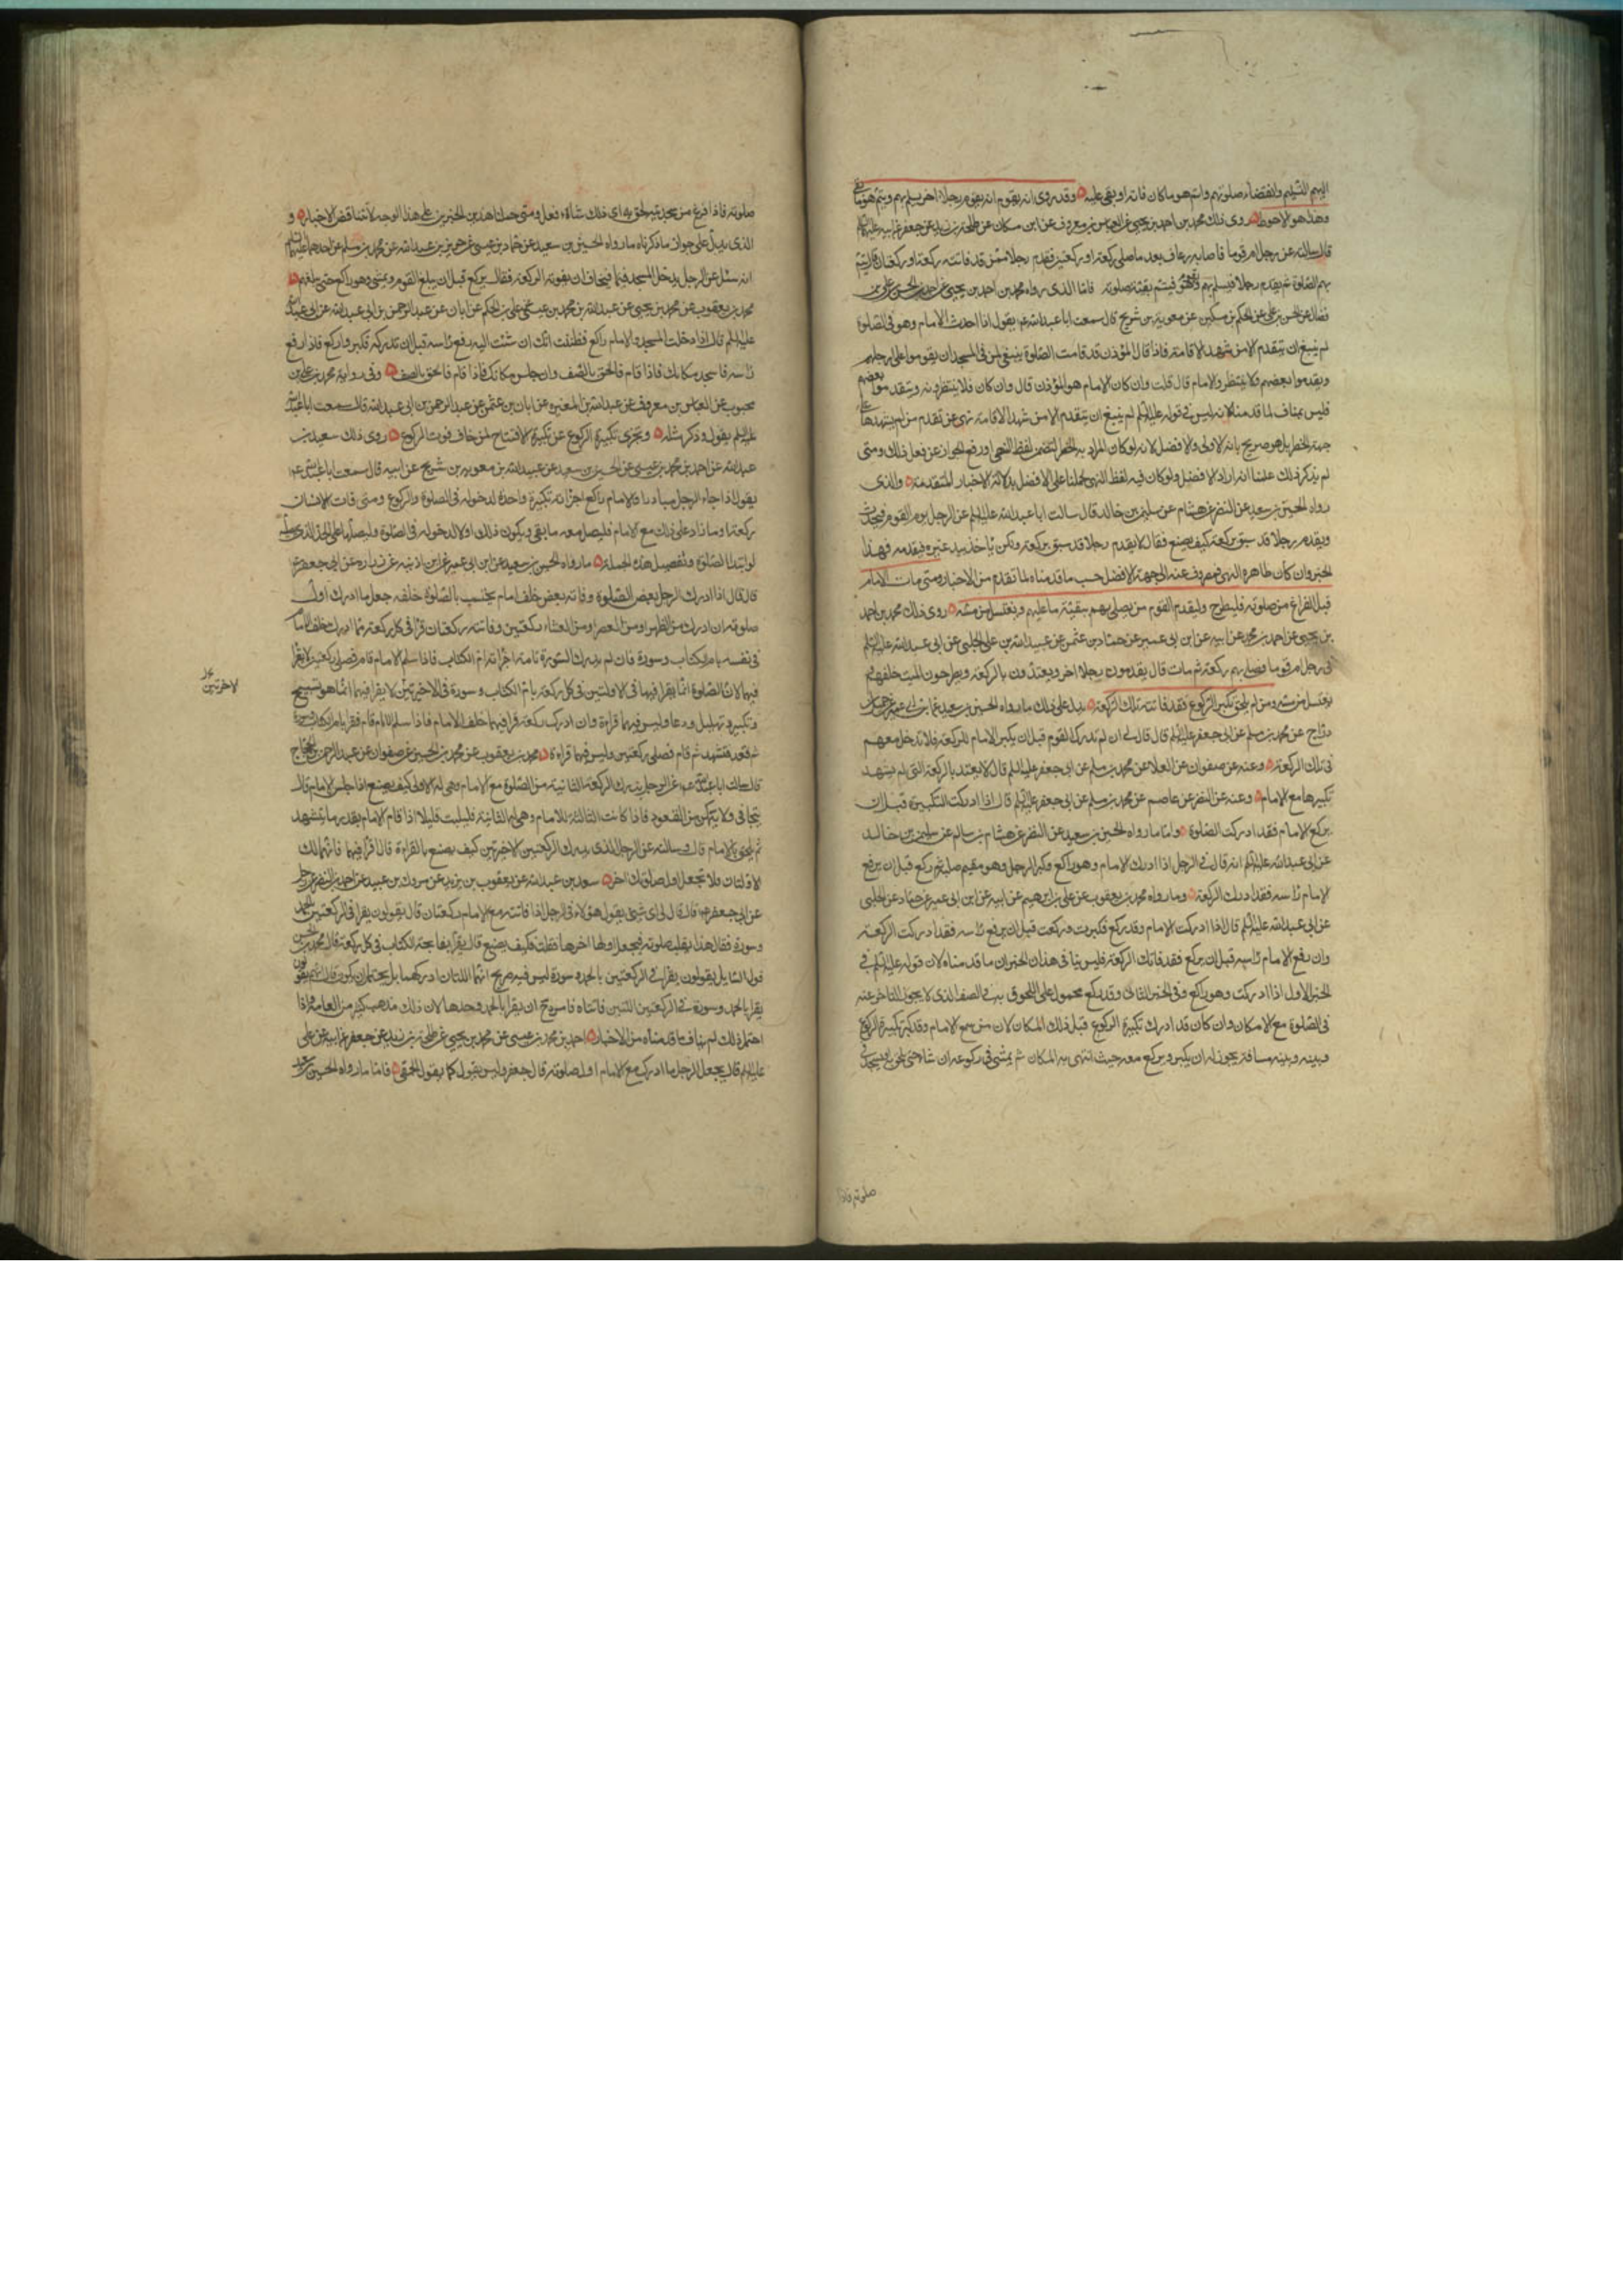 اليهم التسليم وانقضاء صلوتهم واتم هو ماكان فاته او بقى عليه وقد روى انه يقوم رجلا اخر يسلم بهم ويتم هو ما بقى
وهذا هو الاحوط روى ذلك محمد بن احمد بن يحيى عن العباس بن معروف عن ابن مسكان عن طلحة بن زيد عن جعفر عن ابيه عليهما
قال سالته عن رجل ام قوما فاصابه رعاف بعد ما صلى ركعة او ركعتين فقدم رجلا ممن قد فاتته ركعة او ركعتان قال يتم
بهم الصلوة ثم يقدم رجلا فيسلم بهم فيتم بقية صلوته فاما الذى رواه محمد بن احمد بن يحيى عن احمد بن الحسن على بن
فضال عن الحسن بن على عن الحكم بن مسكين عن معوية بن شريح قال سمعت ابا عبد الله يقول اذا احدث الامام وهو فى الصلوة
لم ينبغ ان يتقدم الا من شهد الاقامة فاذا قال المؤذن قد قامت الصلوة ينبغى لمن فى المسجد ان يقوموا على ارجلهم
ويقدموا بعضهم فلا ينتظر والامام قال قلت وان كان الامام هو المؤذن قال وان كان فلا ينتظرونه ويتقدموا بعضهم
فليس بمناف لما قدمناه لانه ليس فى قوله عليه السلم لم ينبغ ان يتقدم الا من شهد الاقامة نهى عن تقدم من لم يشهدها على
جهة الحظر بل هو صريح بانه الاولى والافضل لانه لو كان المراد به الحظر لفظ النهى او رفع الجواز عن فعل ذلك ومتى
لم يذكر ذلك علمنا انه اراد الافضل ولو كان فيه لفظ النهى لحملناه على الافضل بدلالة الاخبار المتقدمة والذى
رواه الحسين بن سعيد عن النضر عن هشام عن سليمن بن خالد قال سالت ابا عبد الله عليه السلم عن الرجل يؤم القوم فيحدث
ويقدم رجلا قد سبق بركعة كيف يصنع فقال لا يقدم رجلا قد سبق بركعة ولكن ياخذ بيد غيره فيقدمه فهذا
الخبر وان كان ظاهره النهى فمصروف عنه الى جهة الافضل حسب ما قدمناه لما تقدم من الاخبار ومتى مات الامام
قبل الفراغ من صلوته فليطرح وليقدم القوم من يصلى بهم بقية ما عليهم ويغتسل من مسه روى ذلك محمد بن احمد
بن يحيى عن احمد بن محمد عن ابيه عن ابن ابى عمير عن حماد بن عثمن عن عبيد الله بن على الحلبى عن ابى عبد الله عليه السلم
فى رجل ام قوما فصلى بهم ركعة ثم مات قال يقدمون رجلا اخر ويعتدون بالركعة ويطرحون الميت خلفهم
يغتسل من مسه ومن لم يلحق تكبير الركوع فقد فاتته تلك الركعة يدل على ذلك ما رواه الحسين بن سعيد عن ابن ابى عمير عن جميل بن
دراج عن محمد بن مسلم عن ابى جعفر عليه السلم قال قال لى ان لم تدرك القوم قبل ان يكبر الامام للركعة فلا تدخل معهم
فى تلك الركعة وعنه عن صفوان عن العلا عن محمد بن مسلم عن ابى جعفر عليه السلم قال لا يعتد بالركعة التى لم يشهد
تكبيرها مع الامام وعنه عن النضر عن عاصم عن محمد بن مسلم عن ابى جعفر عليه السلم قال اذا ادركت التكبيرة قبل ان
يركع الامام فقد ادركت الصلوة واما ما رواه الحسين بن سعيد عن النضر عن هشام بن سالم عن سليمن بن خالد
عن ابى عبد الله عليه السلم انه قال فى الرجل اذا ادرك الامام وهو راكع وكبر الرجل وهو مقيم صلبه ثم ركع قبل ان يرفع
الامام راسه فقد ادرك الركعة وما رواه محمد بن يعقوب عن على بن ابرهيم عن ابيه عن ابن ابى عمير عن حماد عن الحلبى
عن ابى عبد الله عليه السلم قال اذا ادركت الامام وقد ركع فكبرت وركعت قبل ان يرفع راسه فقد ادركت الركعة
وان رفع الامام راسه قبل ان يركع فقد فاتك الركعة فليس ينافى هذان الخبران ما قدمناه لان قوله عليه السلم فى
الخبر الاول اذا ادركت وهو راكع وفى الخبر الثانى وقد ركع محمول على اللحوق به فى الصف الذى لا يجوز التاخر عنه
فى الصلوة مع الامكان وان كان قد ادرك تكبيرة الركوع قبل ذلك المكان لان من سمع الامام وقد كبر تكبيرة الركوع
وبينه وبينه مسافة يجوز له ان يكبر ويركع معه حيث انتهى به المكان ثم يمشى فى ركوعه ان شاء حتى يلحق به او يسجد فى
صلوته فاذا
صلوته فاذا فرغ من سجدتيه لحق به اى ذلك شاء فعل ومتى حملنا هذين الخبرين على هذا الوجه لا تتناقض الاخبار و
الذى يدل على جواز ما ذكرناه ما رواه الحسين بن سعيد عن حماد بن عيسى عن حريز بن عبد الله عن محمد بن مسلم عن احدهما عليهما السلم
انه سئل عن الرجل يدخل المسجد فيخاف ان تفوته الركعة فقال يركع قبل ان يبلغ القوم ويمشى وهو راكع حتى يبلغهم
محمد بن يعقوب عن محمد بن يحيى عن عبد الله بن محمد بن عيسى عن على بن الحكم عن ابان عن عبد الرحمن بن ابى عبد الله عن ابى عبد الله
عليه السلم قال اذا دخلت المسجد والامام راكع فظننت انك ان مشيت اليه رفع راسه قبل ان تدركه فكبر واركع فاذا رفع
راسه فاسجد مكانك فاذا قام فالحق بالصف وان جلس مكانك فاذا قام فالحق بالصف وفى رواية محمد بن على بن
محبوب عن العباس بن معروف عن عبد الله بن المغيرة عن ابان بن عثمن عن عبد الرحمن بن ابى عبد الله قال سمعت ابا عبد الله
عليه السلم يقول وذكر مثله ويجزى تكبيرة الركوع عن تكبيرة الافتتاح لمن خاف فوت الركوع روى ذلك سعد بن
عبد الله عن احمد بن محمد بن عيسى عن الحسين بن سعيد عن عبيد الله بن معوية بن شريح عن ابيه قال سمعت ابا عبد الله
يقول اذا جاء الرجل مبادرا والامام راكع اجزاته تكبيرة واحدة لدخوله فى الصلوة والركوع ومتى فات الانسان
ركعة او ما زاد على ذلك مع الامام فليصل معه ما بقى ويكون ذلك اولا لدخوله فى الصلوة وليصلها على الحد الذى
لو ابتدا الصلوة وتفصيل هذه الجملة ما رواه الحسين بن سعيد عن ابن ابى عمير عن ابن اذينه عن زراره عن ابى جعفر
قال قال اذا ادرك الرجل بعض الصلوة وفاته بعض خلف امام يحتسب بالصلوة خلفه جعل ما ادرك اول
صلوته ان ادرك من الظهر او من العصر او من العشاء ركعتين وفاتته ركعتان قرا فى كل ركعة مما ادرك خلف الامام
فى نفسه بام الكتاب وسورة فان لم يدرك السورة تامة اجزاته ام الكتاب فاذا سلم الامام قام فصلى ركعتين لا يقرا
فيهما لان الصلوة انما يقرا فيها فى الاولتين فى كل ركعة بام الكتاب وسورة وفى الاخرتين لا يقرا فيهما انما هو تسبيح
وتكبير وتهليل ودعا وليس فيهما قراءة وان ادرك ركعة قرا فيها خلف الامام فاذا سلم الامام قام فقرا بام الكتاب وسورة
ثم قعد فتشهد ثم قام فصلى ركعتين وليس فيهما قراءة محمد بن يعقوب عن محمد بن الحسين عن صفوان عن عبد الرحمن بن الحجاج
قال سالت ابا عبد الله عن الرجل يدرك الركعة الثانية من الصلوة مع الامام وهى له الاولى كيف يصنع اذا جلس الامام قال
يتجافى ولا يتمكن من القعود فاذا كانت الثالثة للامام وهى له الثانية فليلبث قليلا اذا قام الامام بقدر ما يتشهد
ثم يلحق بالامام قال وسالته عن الرجل الذى يدرك الركعتين الاخرتين كيف يصنع بالقراءة قال اقرا فيهما فانهما لك
الاولتان ولا تجعل اول صلوتك اخرها سعد بن عبد الله عن يعقوب بن يزيد عن مروك بن عبيد عن احمد بن النضر عن رجل
عن ابى جعفر قال قال لى اى شئ يقول هؤلاء فى الرجل اذا فاتته مع الامام ركعتان قال يقولون يقرا فى الركعتين بالحمد
وسورة فقال هذا يقلب صلوته فيجعل اولها اخرها فقلت فكيف يصنع قال يقرا بفاتحة الكتاب فى كل ركعة قال محمد بن الحسن
قول السايل يقولون يقرا فى الركعتين بالحمد وسورة ليس فيه صريح انهما اللتان ادركهما بل يحتمل ان يكون قال انهم يقولون
يقرا بالحمد وسورة فى الركعتين اللتين فاتتاه فامره ان يقرا بالحمد وحدها لان ذلك مذهب كثير من العامة واذا
احتمل ذلك لم يناف ما قدمناه من الاخبار احمد بن محمد بن عيسى عن محمد بن يحيى عن طلحة بن زيد عن جعفر عن ابيه عن على
عليه السلم قال يجعل الرجل ما ادرك مع الامام اول صلوته قال جعفر وليس يقول كما يقول الحمقى فاما ما رواه الحسين بن سعيد
الاخرتين